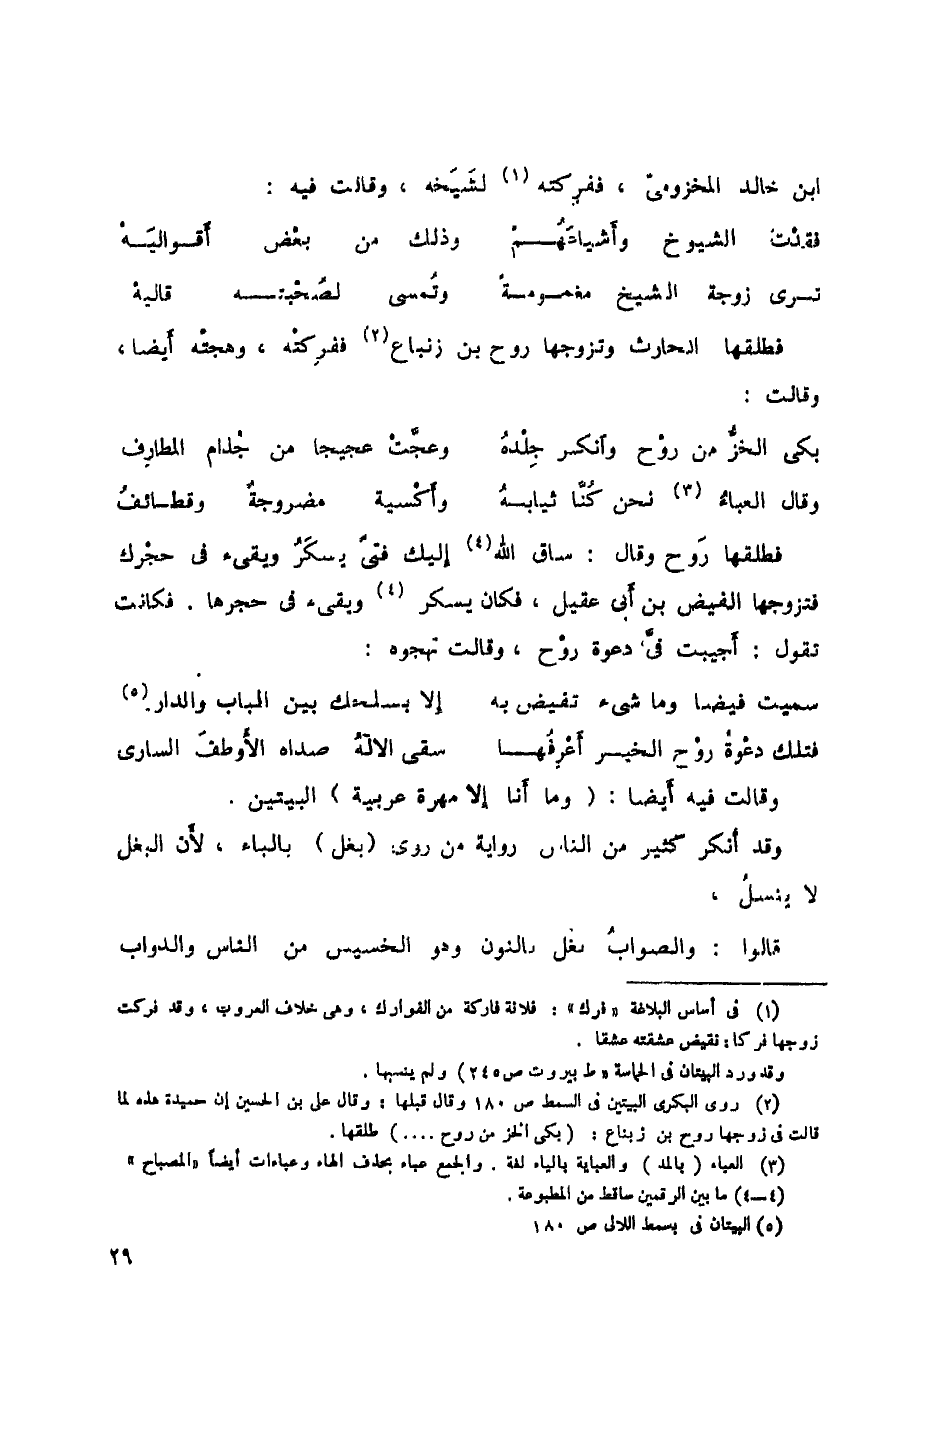 ابن خالد المخزومىّ ، ففركته (١) لشَيَخه ، وقالت فيه :
فقدْتُ الشيوخ وأَشياعَهُمْ وذلك من بعْض أَقواليَهْ
ترى زوجة الشيخ مغمومةً وتُمسى لصُحْبته قاليهْ
فطلقها الحارث وتزوجها روح بن زنباع (٢) ففركتْه ، وهجتْه أَيضا ،
وقالت :
بكى الخزُّ من روْح وأنكر جِلْدهُ وعجَّتْ عجيجا من جُذام المطارِف
وقال العباءُ (٣) نحن كُنَّا ثيابهُ وأَكْسية مضروجةٌ وقطائفُ
فطلقها رَوح وقال : ساق الله (٤) إليك فتىً يسكَرُ ويقىء فى حجْرك
فتزوجها الفيض بن أَبى عقيل ، فكان يسكر (٤) ويقىء فى حجرها . فكانت
تقول : أُجيبت فىَّ دعوة روْح ، وقالت تهجوه :
سميت فيضا وما شىء تفيض به إلا بسلحك بين الباب والدار . (٥)
فتلك دعْوةُ روْح الخير أَعْرِفُها سقى الالهُ صداه الأَوطفَ السارى
وقالت فيه أَيضا : ( وما أنا إلا مهرة عربية ) البيتين .
وقد أَنكر كثير من الناس رواية من روى (بغل) بالباء ، لأَن البغل
لا ينسلُ ،
قالوا : والصوابُ نغل بالنون وهو الخسيس من الناس والدواب
(١) فى أساس البلاغة «فرك» : فلانة فاركة من الفوارك ، وهى خلاف العروب ، وقد فركت
زوجها فركا : نقيض عشقته عشقا .
وقد ورد البيتان فى الحماسة «ط بيروت ص٢٤٥) ولم ينسبها .
(٢) روى البكرى البيتين فى السمط ص ١٨٠ وقال قبلها : وقال على بن الحسين إن حميدة هذه لما
قالت فى زوجها روح بن زنباع : (بكى الخز من روح ....) طلقها .
(٣) العباء ( بالمد ) والعباية بالياء لغة . والجمع عباء بحذف الهاء وعباءات أيضاً «المصباح »
(٤–٤) ما بين الرقمين ساقط من المطبوعة .
(٥) البيتان فى بسمط اللالى ص ١٨٠
٢٩